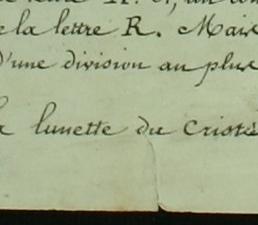 la lettre R. Mais
d'une division au plus
la lunette du Crist